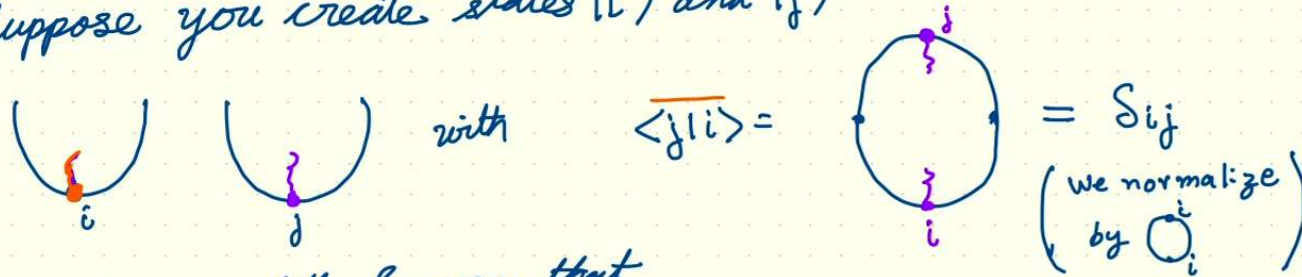 uppose you create states |i⟩ and |j⟩
j
with <j|i> = = δij
(we normalize
by i i)
i j i
that